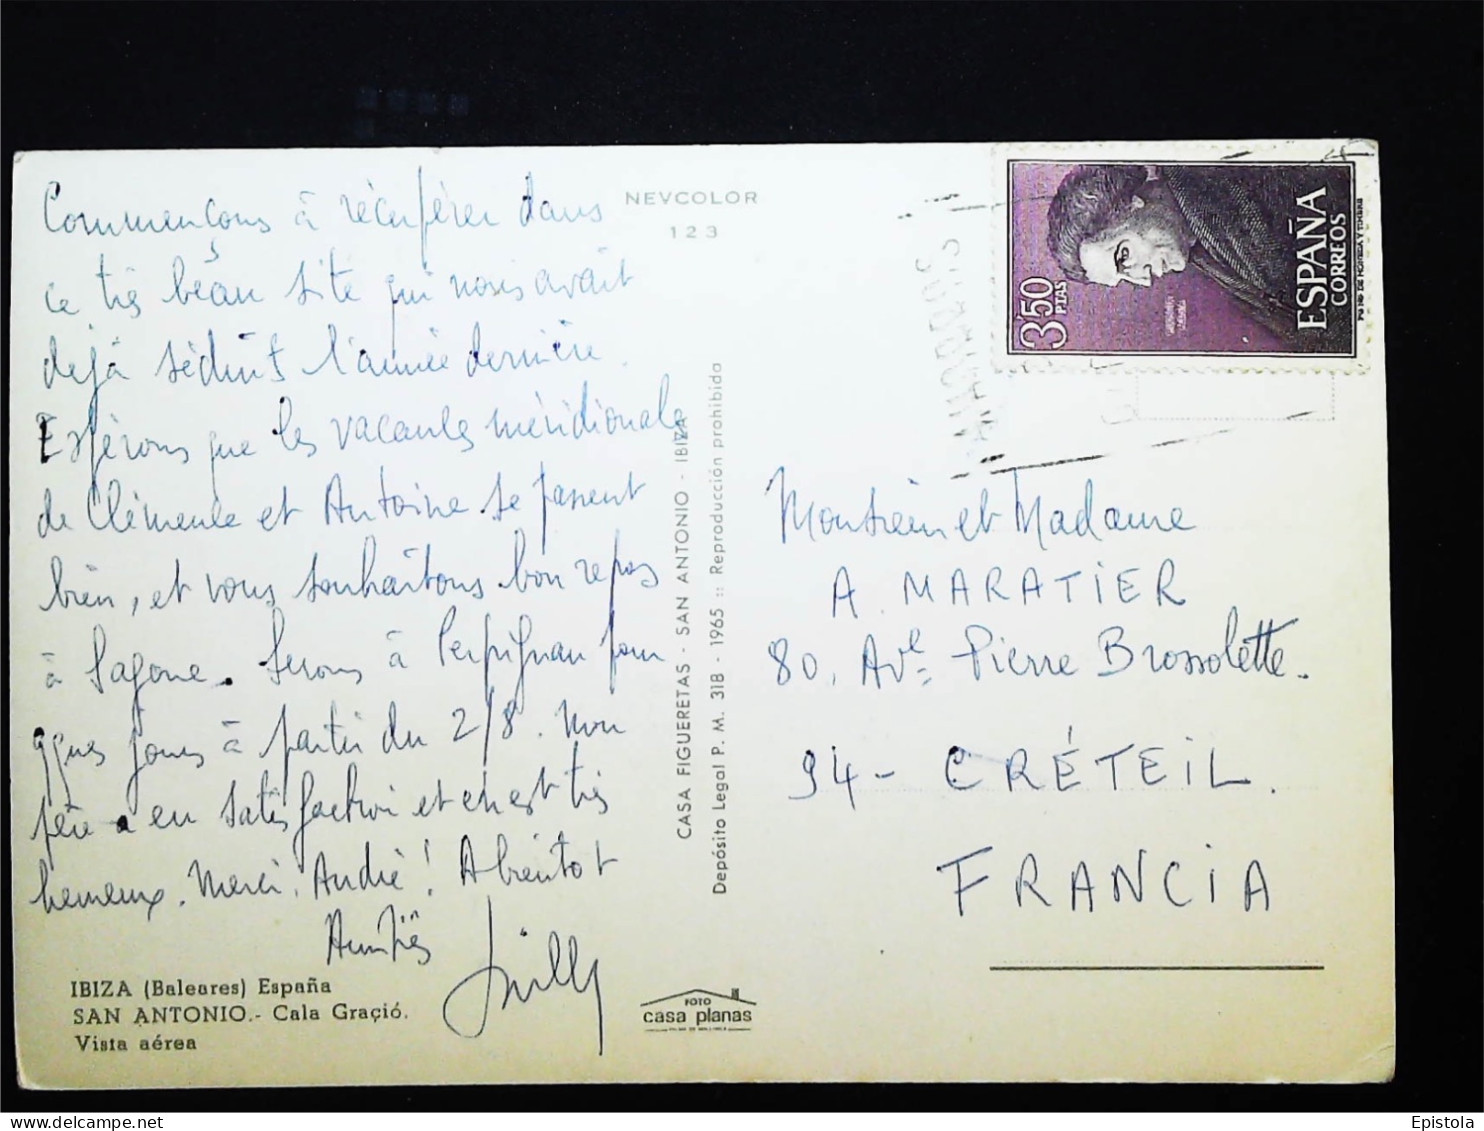 Commençons à récupérer dans
ce très beau site qui nous avait
déjà séduits l'année dernière.
Espérons que les vacances méridionales
de Clémence et Antoine se passent
bien, et vous souhaitons bon repos
à Sagone. Serons à Perpignan pour
qques jours à partir du 2/8. Mon
père a eu satisfaction et en est très
heureux. Merci, André! A bientôt
Amitiés
Willy
IBIZA (Baleares) España
SAN ANTONIO.- Cala Graçió.
Vista aérea
NEVCOLOR
123
CASA FIGUERETAS - SAN ANTONIO - IBIZA
Depósito Legal P. M. 318 - 1965 :: Reproducción prohibida
FOTO
casa planas
PALMA DE MALLORCA
3'50
PTAS
ESPAÑA
CORREOS
Monsieur et Madame
A. MARATIER
80, Ave Pierre Brossolette.
94 - CRÉTEIL.
FRANCIA
delcampe.net
Epistola